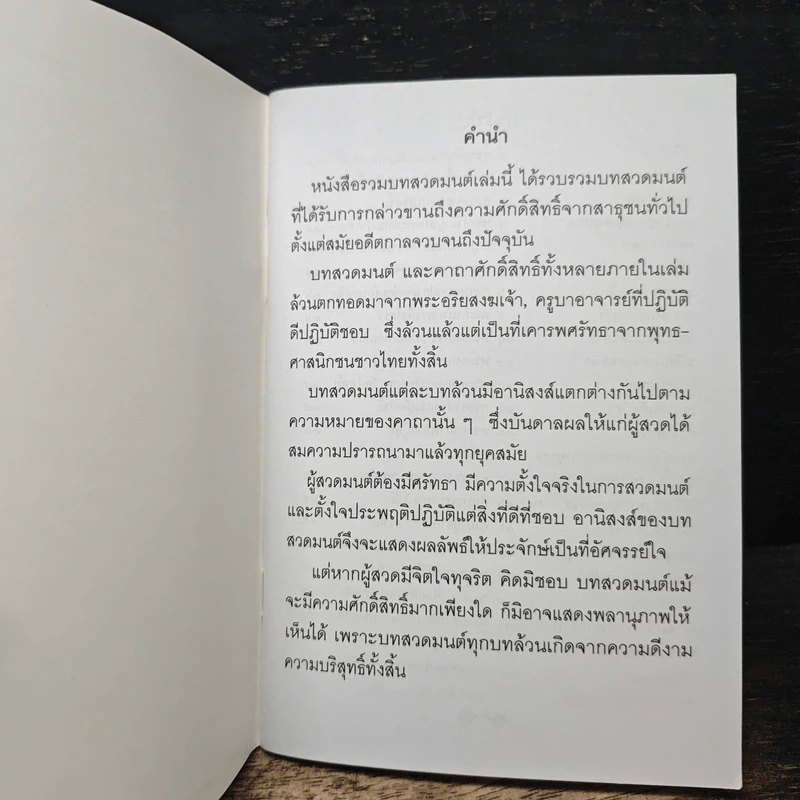 คำนำ
หนังสือรวมบทสวดมนต์เล่มนี้ ได้รวบรวมบทสวดมนต์
ที่ได้รับการกล่าวขานถึงความศักดิ์สิทธิ์จากสาธุชนทั่วไป
ตั้งแต่สมัยอดีตกาลจวบจนถึงปัจจุบัน
บทสวดมนต์ และคาถาศักดิ์สิทธิ์ทั้งหลายภายในเล่ม
ล้วนตกทอดมาจากพระอริยสงฆเจ้า, ครูบาอาจารย์ที่ปฏิบัติ
ดีปฏิบัติชอบ ซึ่งล้วนแล้วแต่เป็นที่เคารพศรัทธาจากพุทธ-
ศาสนิกชนชาวไทยทั้งสิ้น
บทสวดมนต์แต่ละบทล้วนมีอานิสงส์แตกต่างกันไปตาม
ความหมายของคาถานั้น ๆ ซึ่งบันดาลผลให้แก่ผู้สวดได้
สมความปรารถนามาแล้วทุกยุคสมัย
ผู้สวดมนต์ต้องมีศรัทธา มีความตั้งใจจริงในการสวดมนต์
และตั้งใจประพฤติปฏิบัติแต่สิ่งที่ดีที่ชอบ อานิสงส์ของบท
สวดมนต์จึงจะแสดงผลลัพธ์ให้ประจักษ์เป็นที่อัศจรรย์ใจ
แต่หากผู้สวดมีจิตใจทุจริต คิดมิชอบ บทสวดมนต์แม้
จะมีความศักดิ์สิทธิ์มากเพียงใด ก็มิอาจแสดงพลานุภาพให้
เห็นได้ เพราะบทสวดมนต์ทุกบทล้วนเกิดจากความดีงาม
ความบริสุทธิ์ทั้งสิ้น